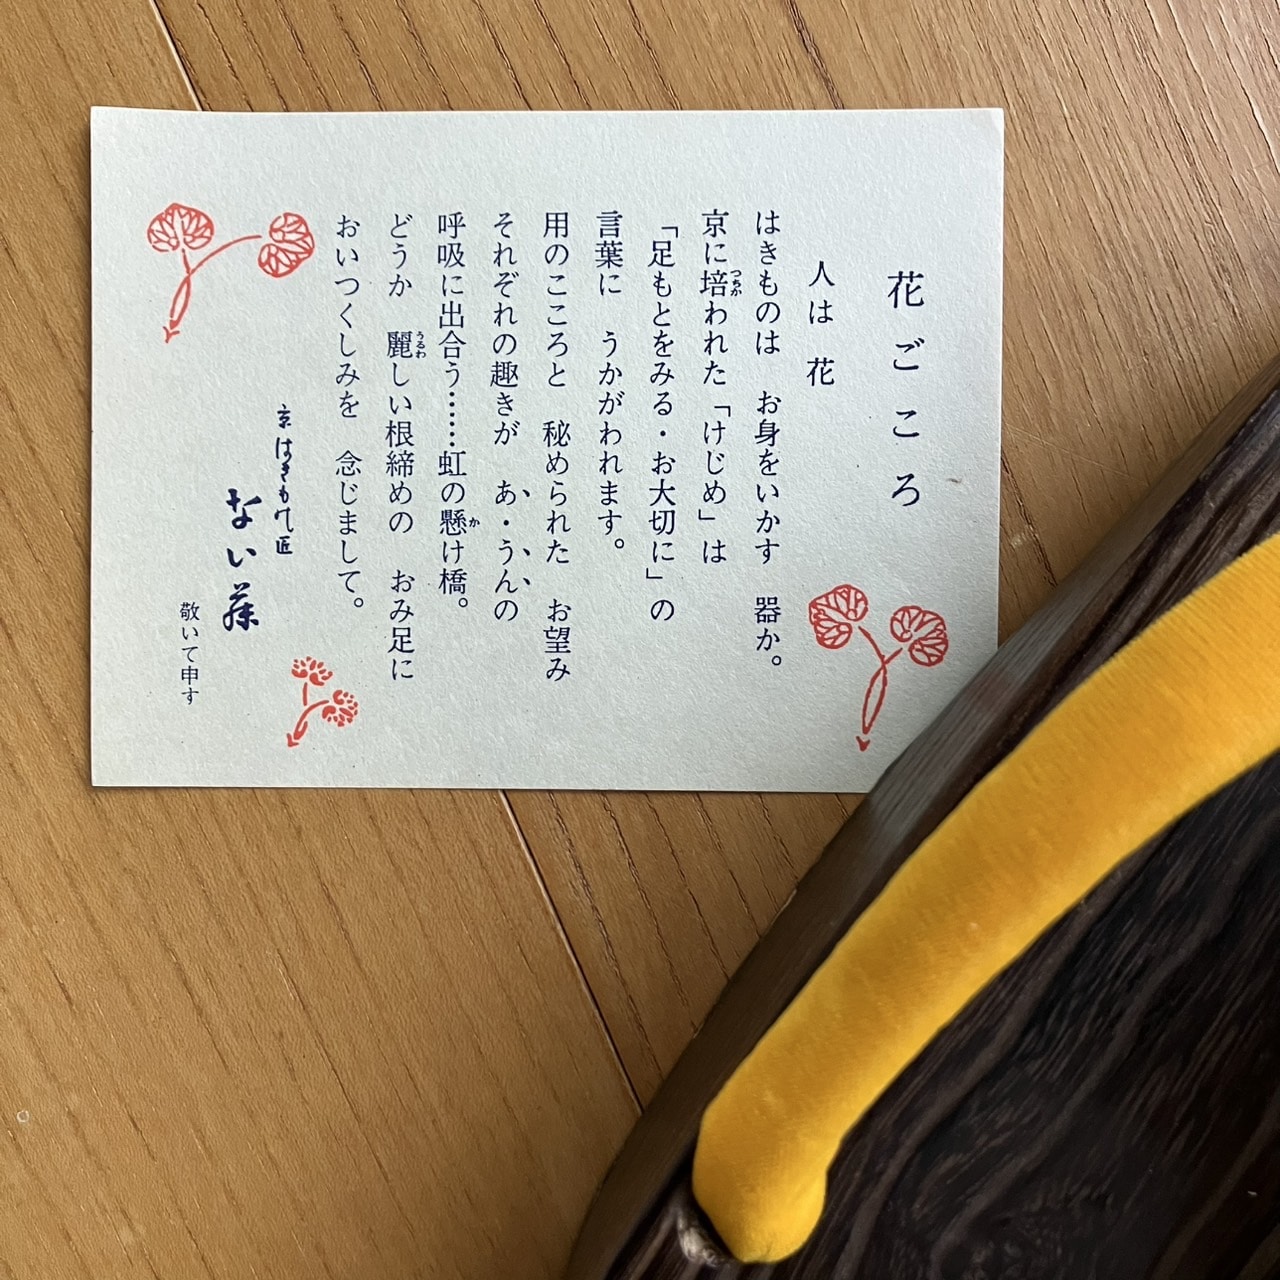 花ごころ
人は 花
はきものは お身をいかす 器か。
京に培われた「けじめ」は
「足もとをみる・お大切に」の
言葉に うかがわれます。
用のこころと 秘められた お望み
それぞれの趣きが あ・うんの
呼吸に出合う……虹の懸け橋。
どうか 麗しい根締めの おみ足に
おいつくしみを 念じまして。
京はきもの匠
ない藤
敬いて申す